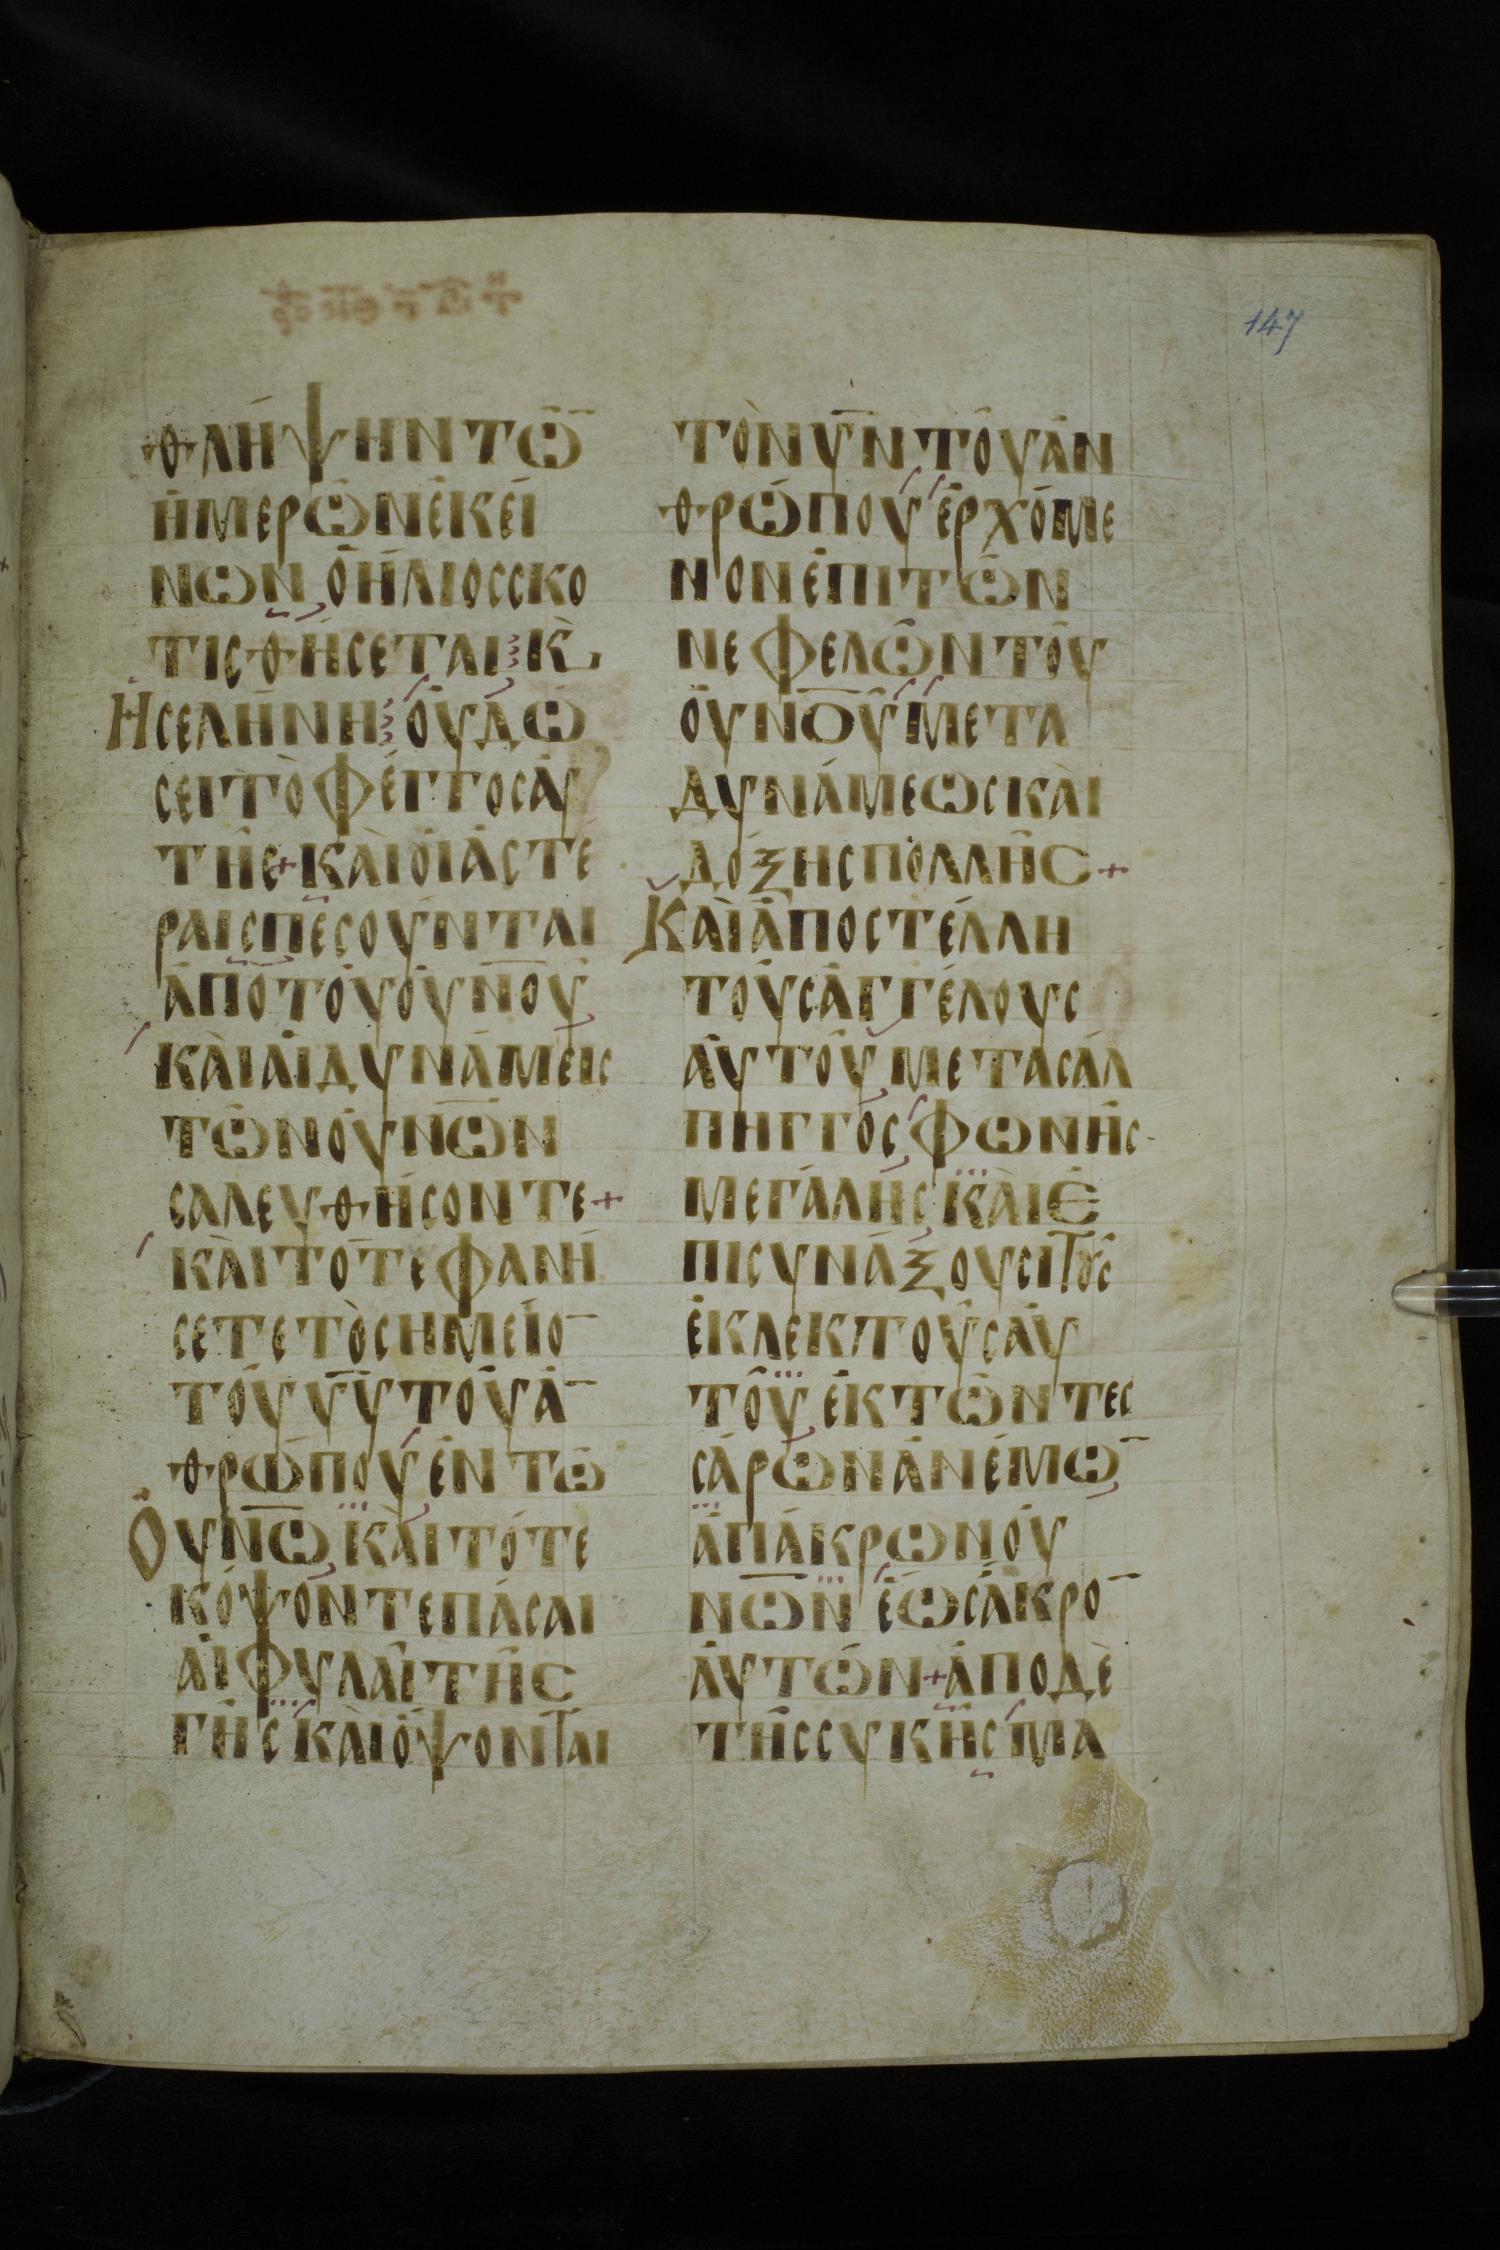 147
ΘΛΉΨΗΝ ΤῶΝ
ἩΜΕΡῶΝ ἘΚΕΊ
ΝΩΝ Ὁ ἭΛΙΟϹ ϹΚΟ
ΤΙϹΘΉϹΕΤΑΙ· Κ̀
Ἡ ϹΕΛΉΝΗ· ΟΥ ΔΩ
ϹΕΙ ΤῸ ΦΈΓΓΟϹ ἈΥ
ΤΗ͂Ϲ + ΚΑῚ ΟἹ ἈϹΤΈ
ΡΑΙϹ ΠΕϹΟΥ͂ΝΤΑΙ
ἈΠΟ ΤΟΥ͂ ΟΥ̓Ν̅ΟΥ͂
ΚΑῚ ἉΙ ΔΥΝΆΜΕΙϹ
ΤῶΝ ΟΥ̓Ν̅ῶ̅Ν
ϹΑΛΕΥΘΉϹΟΝΤΕ +
ΚΑῚ ΤΌΤΕ ΦΑΝΉ
ϹΕΤΕ ΤῸ ϹΗΜΕΙΟ̅
ΤΟΥ͂ Υ̅Υ̅ ΤΟΥ͂ Ἀ̅
ΘΡΏΠΟΥ ἘΝ Τῶ
ΟΥ̓Ν̅ῶ̅ ΚΑῚ ΤΌΤΕ
ΚΌΨΟΝΤΕ ΠΆϹΑΙ
ἉΙ ΦΥΛΑῚ ΤΗ͂Ϲ
ΓΗ͂Ϲ ΚΑῚ ὌΨΟΝΤΑΙ
ΤῸΝ Υ̅Ν̅ ΤΟΥ͂ ἈΝ
ΘΡΏΠΟΥ ἘΡΧΌΜΕ
ΝΟΝ ἘΠΙ ΤῶΝ
ΝΕΦΕΛῶΝ ΤΟΥ͂
ΟΥ̓Ν̅Ο̅Υ͂ ΜΕΤΑ
ΔΥΝΆΜΕΩϹ ΚΑῚ
ΔΌΞΗϹ ΠΟΛΛΗ͂Ϲ +
ΚΑῚ ἈΠΟϹΤΈΛΛΗ
ΤΟΥ̓Ϲ ἈΓΓΈΛΟΥϹ
ἈΥΤΟΥ͂ ΜΕΤΑ ϹΆΛ
ΠΗΓΓΟϹ ΦΩΝΗ͂Ϲ
ΜΕΓΆΛΗϹ ΚΑῚ Ἐ
ΠΙϹΥΝΆΞΟΥϹΙ ΤΟῪϹ
ἘΚΛΕΚΤΟΥ̓Ϲ ἈΥ
ΤΟΥ͂ ἘΚ ΤῶΝ ΤΕϹ
ϹΆΡΩΝ ἈΝΈΜΩ̅
ἈΠ ἌΚΡΩΝ ΟΥ̓
Ν̅Ω̅Ν ἝΩϹ ἌΚΡΟ̅
ἈΥΤῶΝ + ἈΠΟ ΔΈ
ΤΗ͂Ϲ ϹΥΚΗ͂Ϲ ΜΑ